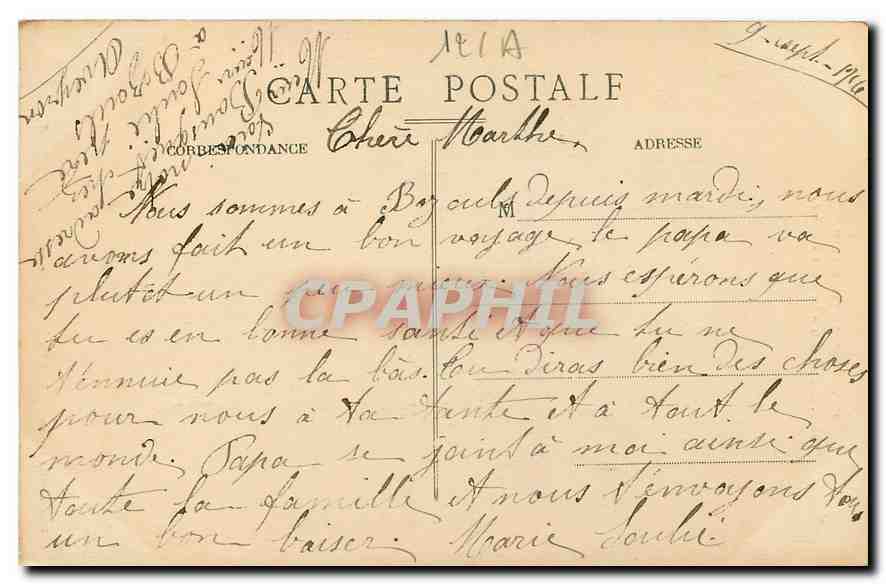 9 sept. 1914
121A
CARTE POSTALE
CORRESPONDANCE
ADRESSE
M
Chère Marthe,
Nous sommes à Bozouls depuis mardi, nous
avons fait un bon voyage, le papa va
plutot un peu mieux. Nous espérons que
tu es en bonne santé et que tu ne
t'ennuie pas la bàs. Tu diras bien des choses
pour nous à ta tante et à tout le
monde. Papa se joint à moi ainsi que
toute la famille et nous t'envoyons tous
un bon baiser. Marie Soulié
Voici notre adresse
Mr Bousquet chez
Mr Soulié père
à Bozouls
Aveyron
CPAPHIL